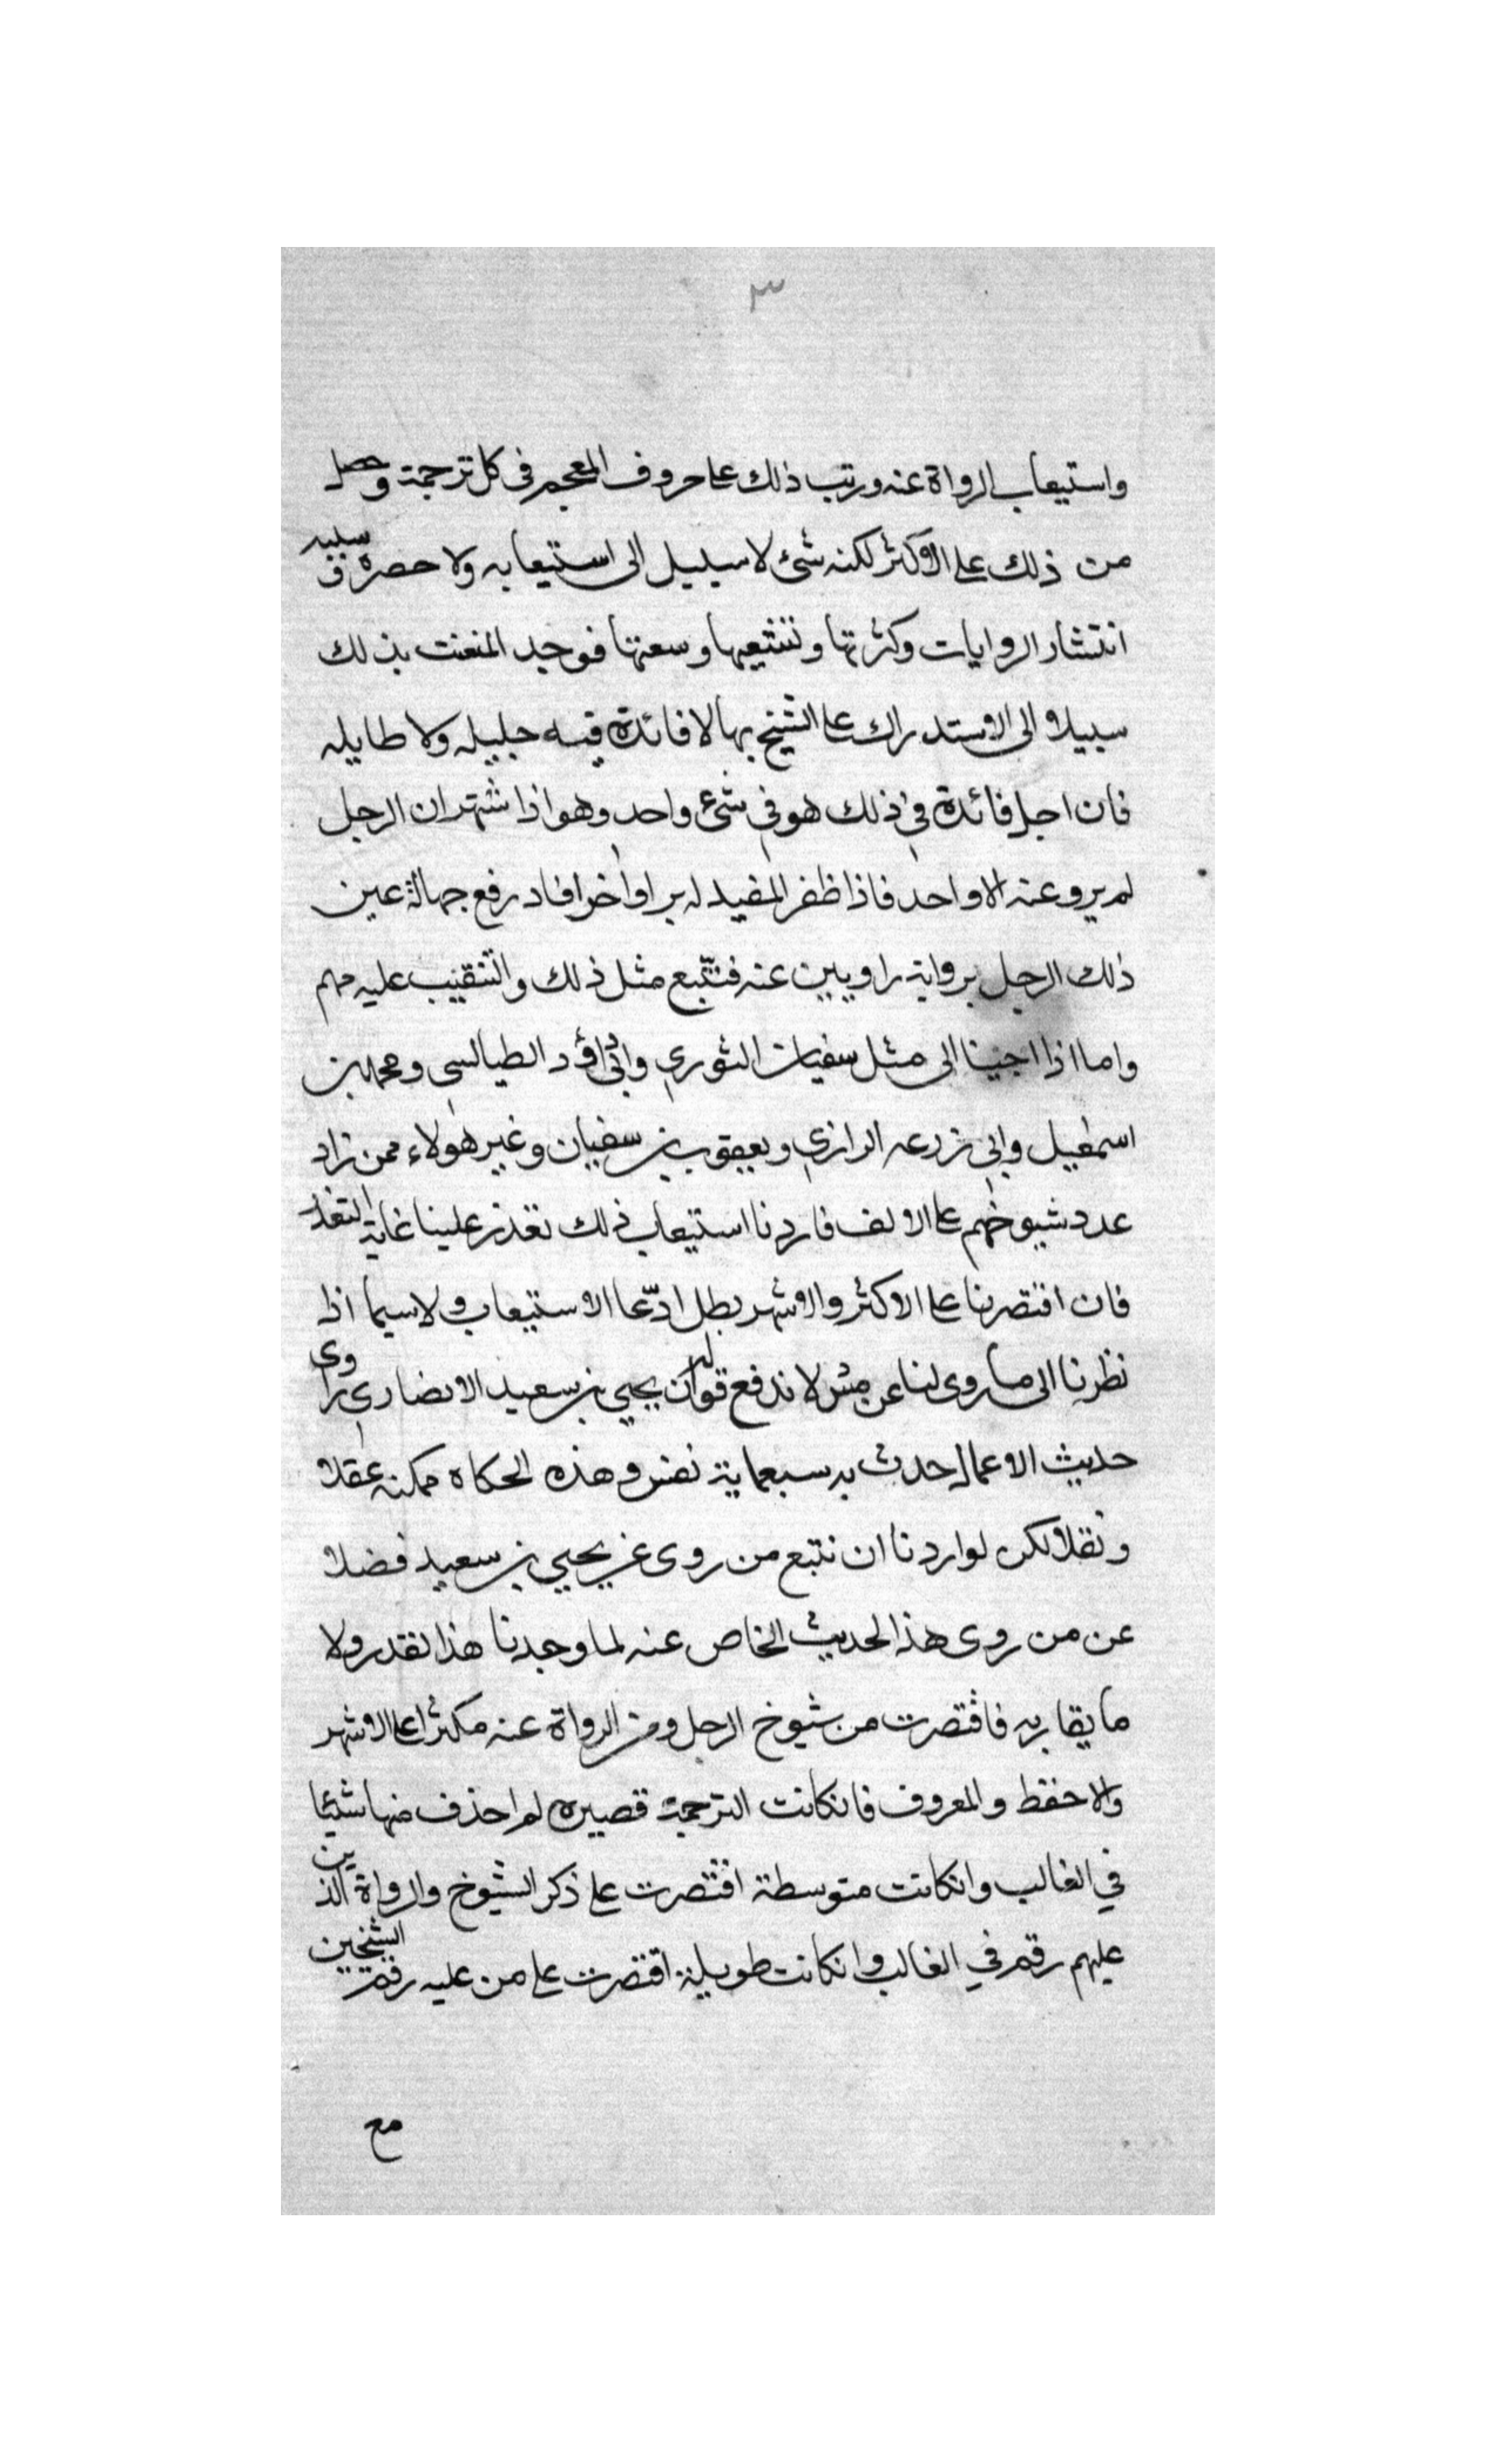 ٣
واستيعاب الرواة عنه ورتب ذلك على حروف المعجم في كل ترجمة وحصل
من ذلك على الاكثر لكنه شئ لا سبيل الى استيعابه ولا حصره وسببه
انتشار الروايات وكثرتها وتشعبها وسعتها فوجد المتعنت بذلك
سبيلا الى الاستدراك على الشيخ بما لا فائدة فيه جليله ولا طايله
فان اجل فائدة في ذلك هو في شئ واحد وهو اذا اشتهر ان الرجل
لم يرو عنه الا واحد فاذا ظفر المفيد له براو اخر افاد رفع جهالة عين
ذلك الرجل برواية راويين عنه فتتبع مثل ذلك والتنقيب عليه مهم
واما اذا جينا الى مثل سفيان الثوري وابي داؤد الطيالسي ومحمد بن
اسمعيل وابي زرعه الرازي ويعقوب بن سفيان وغير هولاء ممن زاد
عدد شيوخهم على الالف فاردنا استيعاب ذلك تعذر علينا غاية التعذر
فان اقتصرنا على الاكثر والاشهر بطل ادّعا الاستيعاب ولا سيما اذا
نظرنا الى ما روى لنا عن من لا ندفع قوله ان يحيي بن سعيد الانصاري راوى
حديث الاعمال حدث به سبعماية نفس وهذه الحكاه ممكنه عقلا
ونقلا لكن لو اردنا ان نتبع من روى عن يحيي بن سعيد فضلا
عن من روى هذا الحديث الخاص عنه لما وجدنا هذا لقدر ولا
ما يقاربه فاقتصرت من شيوخ الرجل ومن الرواة عنه مكثرا على الاشهر
والاحفظ والمعروف فان كانت الترجمة قصيره لم احذف منها شيئا
في الغالب وان كانت متوسطة اقتصرت على ذكر الشيوخ والرواة الذين
عليهم رقم في الغالب وان كانت طويلة اقتصرت على من عليه رقم الشيخين
مع